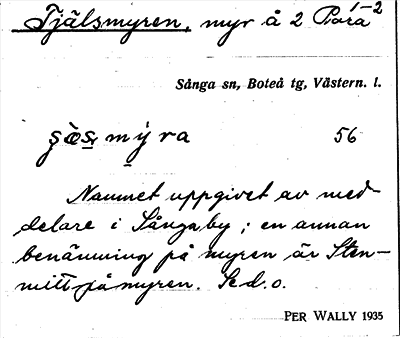 Tjälsmyren, myr å 2 Para 1-2
Sånga sn, Boteå tg, Västern. l.
56
Namnet uppgivet av med-
delare i Sångaby; en annan
benämning på myren är Sten-
mittpåmyren. Se d. o.
PER WALLY 1935